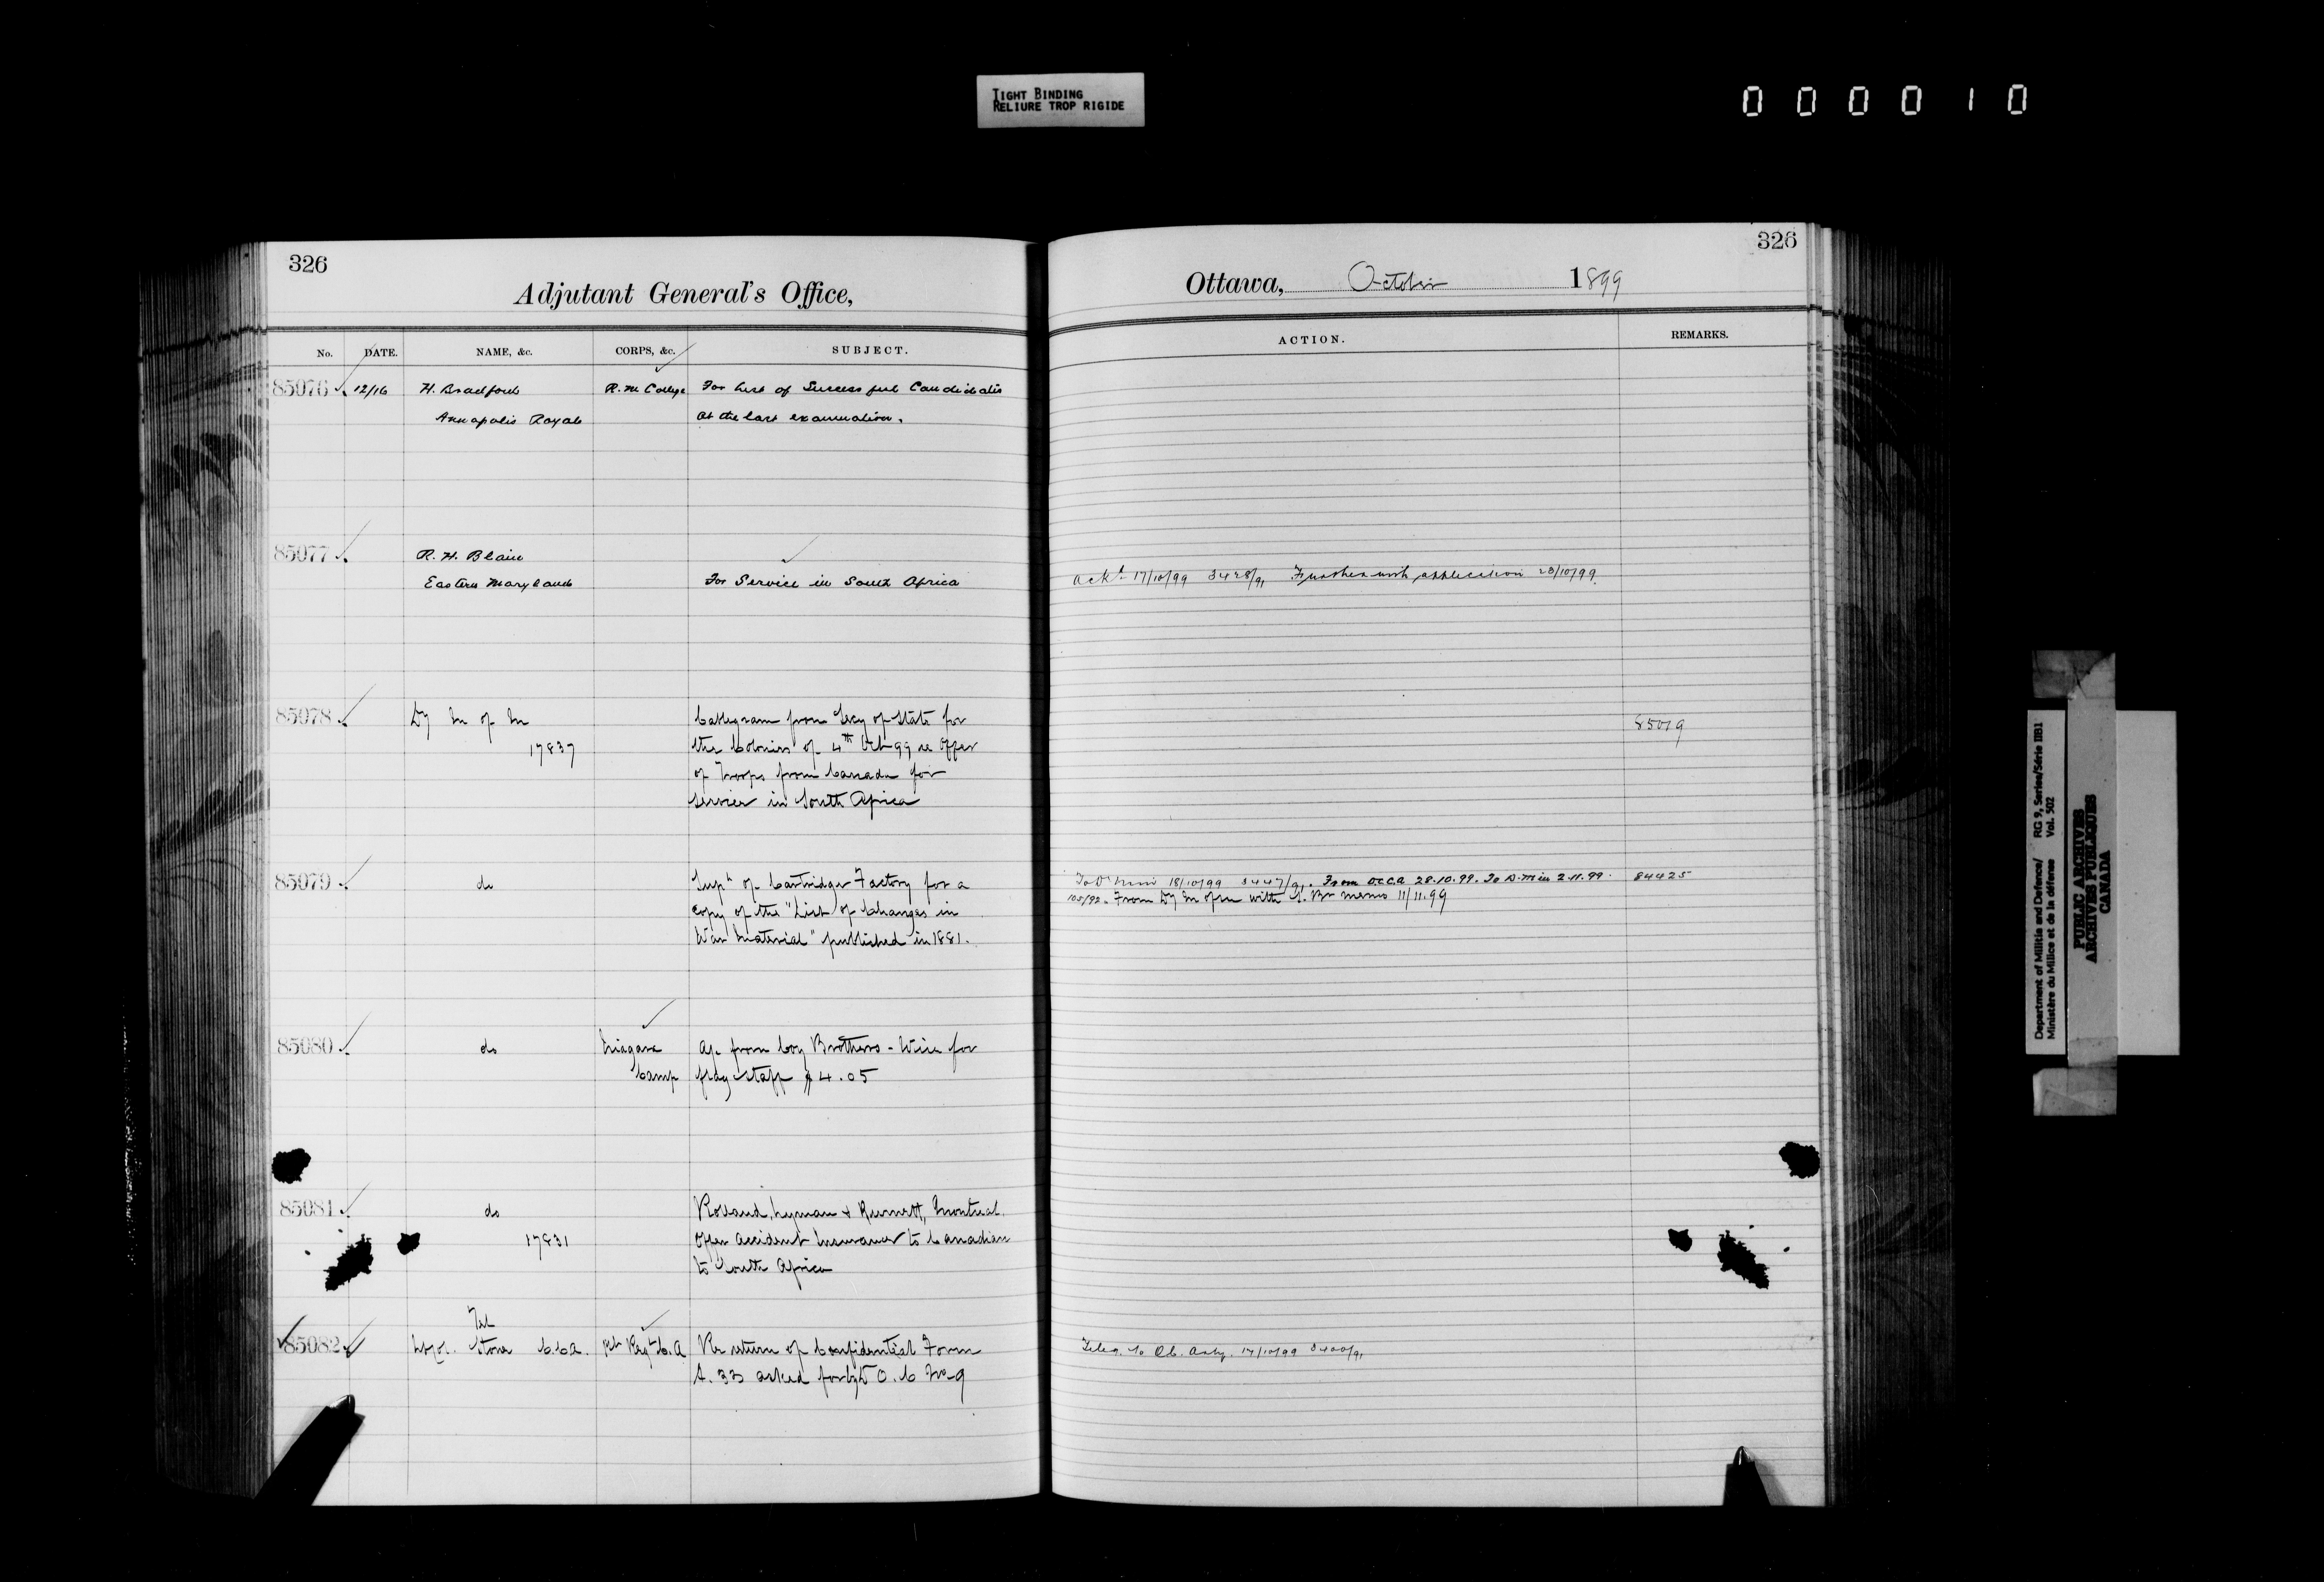 TIGHT BINDING
RELIURE TROP RIGIDE
000010
326
Adjutant General's Office,
No. DATE. NAME, &c. CORPS, &c. SUBJECT.
85076 12/16 H. Bradford R. M. College For List of Successful Candidates
Annapolis Royal at the last examination.
85077 R. H. Blair
Eastern Maryland For Service in South Africa
85078 Dy M of M Cablegram from Secy of State for
17837 the Colonies of 4th Oct 99 re Offer
of Troops from Canada for
service in South Africa
85079 do Supt of Cartridge Factory for a
copy of the "List of Changes in
War Material" published in 1881.
85080 do Niagara a/c from Coy Brothers - Wire for
Camp flag staff $4.05
85081 do Lyman & Burnett, Montreal
17831 Offer Accident Insurance to Canadian
to South Africa
Tel
85082 Stone C.C.A. Regt C.A Re return of Confidential Form
A. 33 asked for by O.C
326
Ottawa, October 1899
ACTION. REMARKS.
Ackd 17/10/99 3428/91 Further with application 23/10/99.
85019
To D Min 18/10/99 3447/91. From O.C.C.A 28.10.99. To D. Min 2.11.99. 84425
105/92. From Dy M of M with memo 11/11.99
Teleg. to 17/10/99 3400/91
Department of Militia and Defence/ RG 9, Series/Série IIB1
Ministère du Milice et de la défense Vol. 502
PUBLIC ARCHIVES
ARCHIVES PUBLIQUES
CANADA